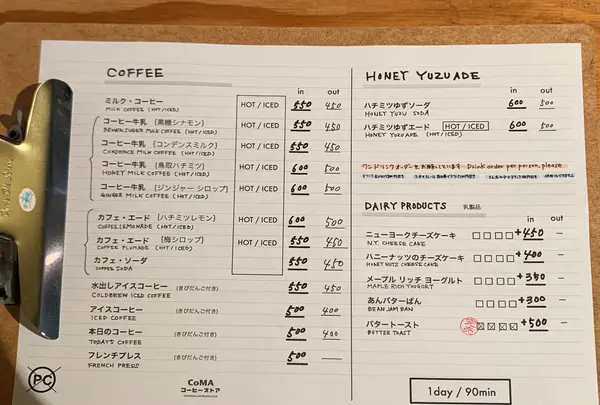 COFFEE
in out
ミルク・コーヒー HOT / ICED 550 450
MILK COFFEE (HOT/ICED)
コーヒー牛乳 [黒糖シナモン] HOT / ICED 550 450
BROWN SUGER MILK COFFEE (HOT/ICED)
コーヒー牛乳 [コンデンスミルク] HOT / ICED 550 450
CONDENCE MILK COFFEE (HOT/ICED)
コーヒー牛乳 [鳥取ハチミツ] HOT / ICED 600 500
HONEY MILK COFFEE (HOT/ICED)
コーヒー牛乳 [ジンジャー シロップ] HOT / ICED 600 500
GINGER MILK COFFEE (HOT/ICED)
カフェ・エード [ハチミツレモン] HOT / ICED 600 500
COFFEE LEMONADE (HOT/ICED)
カフェ・エード [梅シロップ] HOT / ICED 550 450
COFFEE PLUMADE (HOT/ICED)
カフェ・ソーダ 550 450
COFFEE SODA
水出しアイスコーヒー (きびだんご付き) 550 450
COLDBREW ICED COFFEE
アイスコーヒー (きびだんご付き) 500 400
ICED COFFEE
本日のコーヒー (きびだんご付き) 500 400
TODAYS COFFEE
フレンチプレス (きびだんご付き) 500 —
FRENCH PRESS
PC
CoMA
コーヒーストア
HONEY YUZUADE
in out
ハチミツゆずソーダ 600 500
HONEY YUZU SODA
ハチミツゆずエード HOT / ICED 600 500
HONEY YUZUADE (HOT/ICED)
ワンドリンクオーダーをお願いしています Drink order per person, please
DAIRY PRODUCTS 乳製品
in out
ニューヨークチーズケーキ +450 —
N.Y. CHEESE CAKE
ハニーナッツのチーズケーキ +400 —
HONEY NUTS CHEESECAKE
メープル リッチ ヨーグルト +350 —
MAPLE RICH YUGORT
あんバターぱん +300 —
BEAN JAM BAN
バタートースト +500 —
BUTTER TOAST
1day / 90min